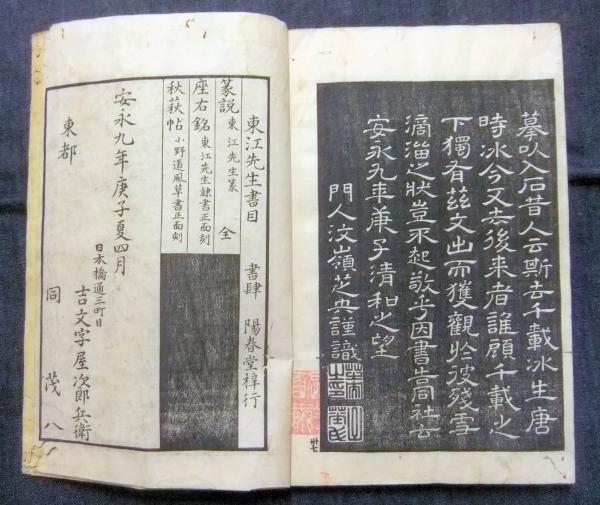 摹以入石昔人云斯去千載冰生唐
時冰今又去後來者誰顧千載之
下獨有茲文出而獲觀於彼殘雪
滴溜之狀豈不起敬乎因書嵩社云
安永九年庚子清和之望
門人汶嶺芝央謹識
丗七
東江先生書目 書肆 陽春堂梓行
篆説 東江先生篆 全
座右銘 東江先生隷書正面刻
秋萩帖 小野道風草書正面刻
安永九年庚子夏四月
日本橋通三町目
古文字屋次郎兵衛
東都
同 茂八